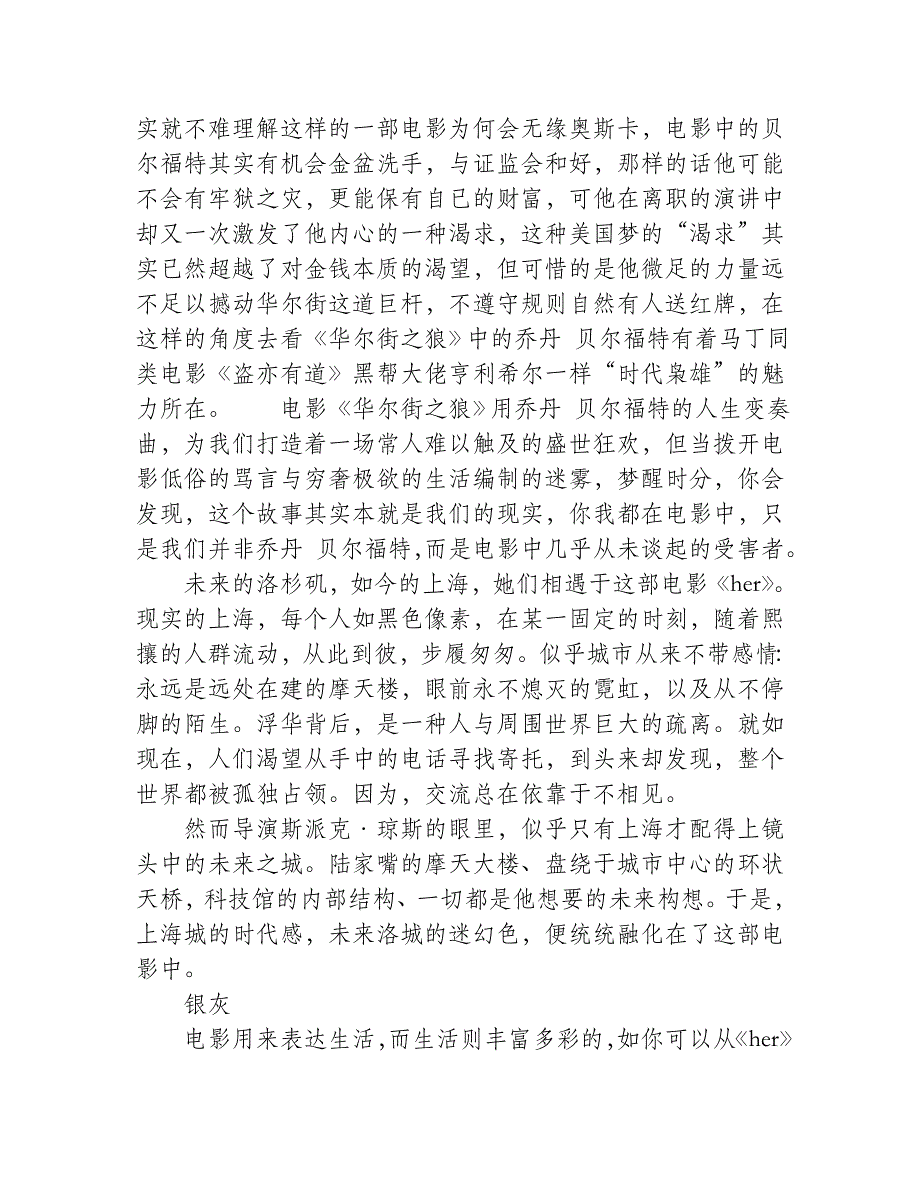 实就不难理解这样的一部电影为何会无缘奥斯卡，电影中的贝
尔福特其实有机会金盆洗手，与证监会和好，那样的话他可能
不会有牢狱之灾，更能保有自已的财富，可他在离职的演讲中
却又一次激发了他内心的一种渴求，这种美国梦的“渴求”其
实已然超越了对金钱本质的渴望，但可惜的是他微足的力量远
不足以撼动华尔街这道巨杆，不遵守规则自然有人送红牌，在
这样的角度去看《华尔街之狼》中的乔丹 贝尔福特有着马丁同
类电影《盗亦有道》黑帮大佬亨利希尔一样“时代枭雄”的魅
力所在。 电影《华尔街之狼》用乔丹 贝尔福特的人生变奏
曲，为我们打造着一场常人难以触及的盛世狂欢，但当拨开电
影低俗的骂言与穷奢极欲的生活编制的迷雾，梦醒时分，你会
发现，这个故事其实本就是我们的现实，你我都在电影中，只
是我们并非乔丹 贝尔福特,而是电影中几乎从未谈起的受害者。
未来的洛杉矶，如今的上海，她们相遇于这部电影《her》。
现实的上海，每个人如黑色像素，在某一固定的时刻，随着熙
攘的人群流动，从此到彼，步履匆匆。似乎城市从来不带感情:
永远是远处在建的摩天楼，眼前永不熄灭的霓虹，以及从不停
脚的陌生。浮华背后，是一种人与周围世界巨大的疏离。就如
现在，人们渴望从手中的电话寻找寄托，到头来却发现，整个
世界都被孤独占领。因为，交流总在依靠于不相见。
然而导演斯派克·琼斯的眼里，似乎只有上海才配得上镜
头中的未来之城。陆家嘴的摩天大楼、盘绕于城市中心的环状
天桥，科技馆的内部结构、一切都是他想要的未来构想。于是，
上海城的时代感，未来洛城的迷幻色，便统统融化在了这部电
影中。
银灰
电影用来表达生活,而生活则丰富多彩的,如你可以从《her》